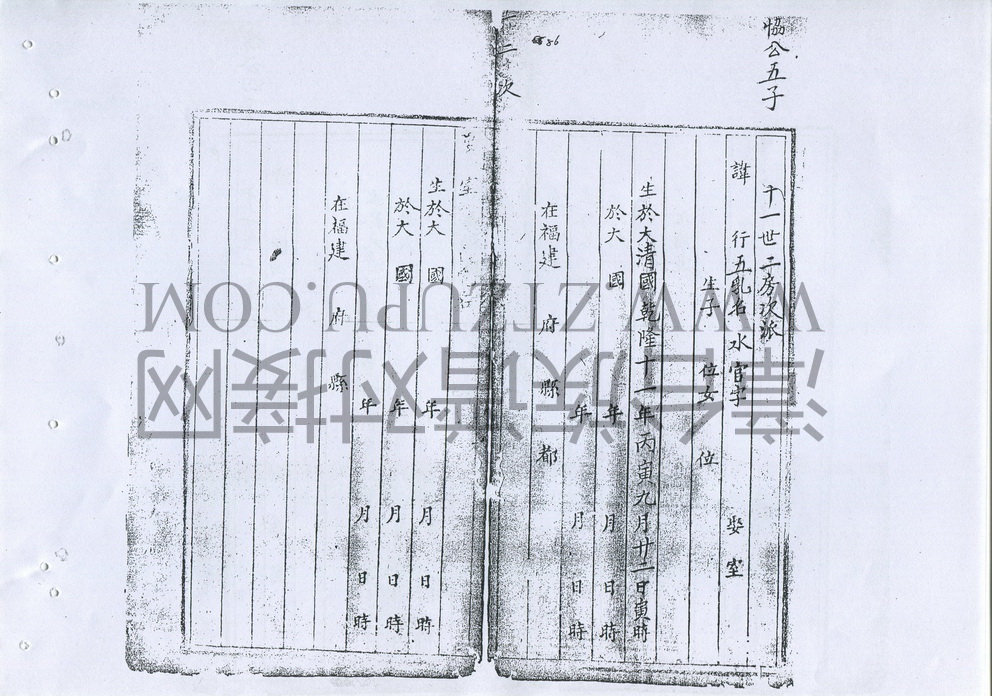 協公五子
十一世二房次派
諱 行五乳名水官字 娶 室
生子 位女 位
生於大清國乾隆十一年丙寅九月廿二日寅時
於大 國 年 月 日 時
年 月 日 時
在福建 府 縣 都
二 次
86
室
生於大 國 年 月 日 時
於大 國 年 月 日 時
年 月 日 時
在福建 府 縣
WWW.ZTZUPU.COM
漳台族谱对接网